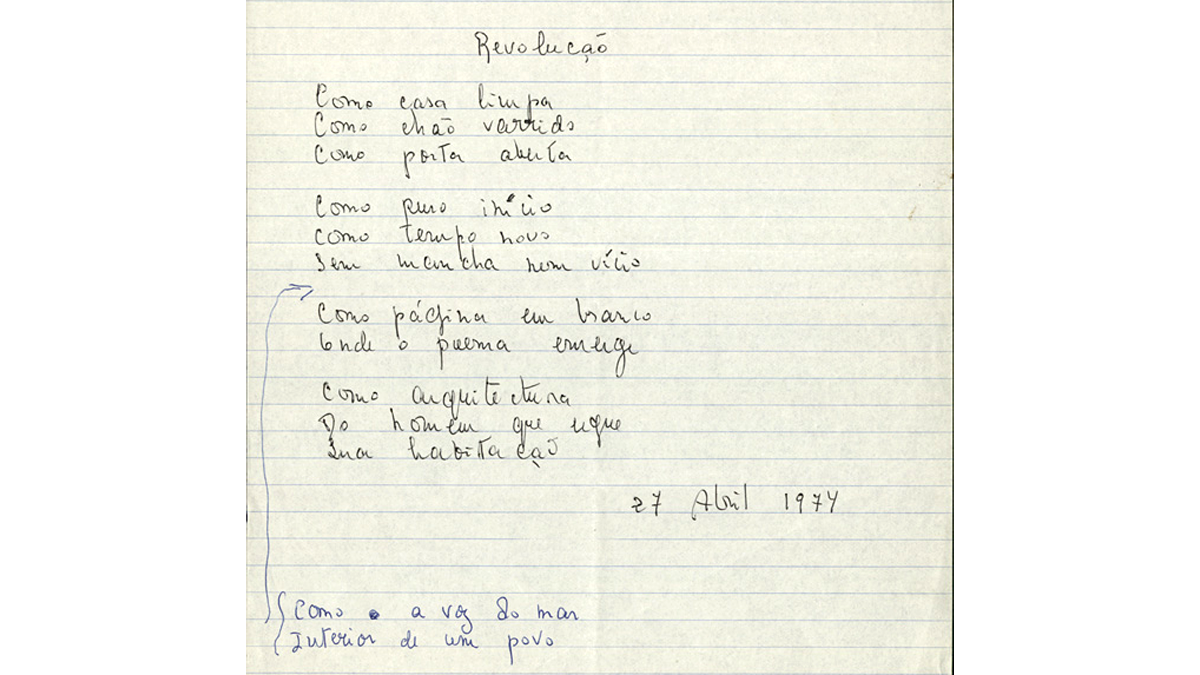 Revolucção
Como casa limpa
Como chão varrido
Como porta aberta
Como puro início
Como tempo novo
Sem mancha nem vício
Como página em branco
Onde o poema emerge
Como arquitectura
Do homem que ergue
Sua habitação
27 Abril 1974
Como a voz do mar
Interior de um povo